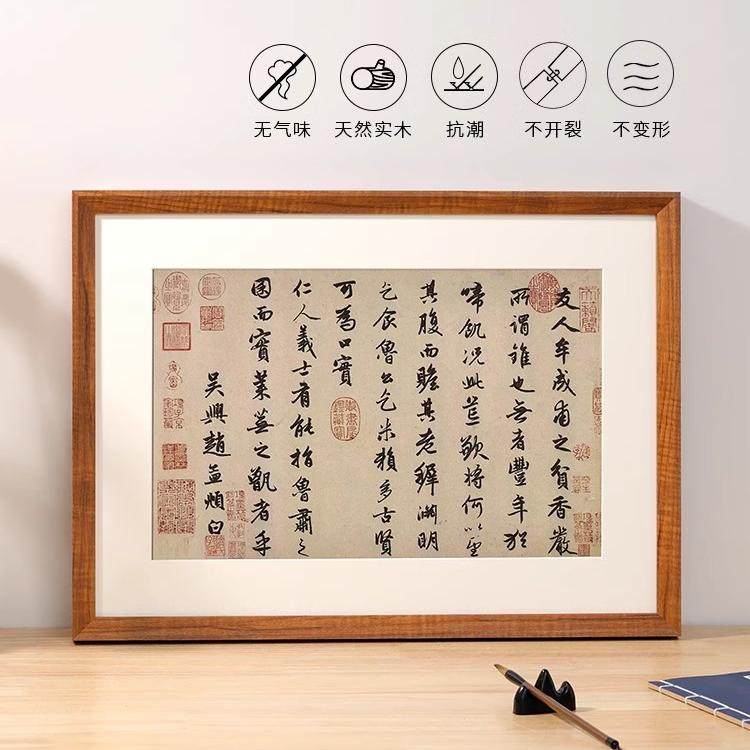 无气味
天然实木
抗潮
不开裂
不变形
友人牟成甫之貧香嚴
所謂錐也無者豐年猶
啼飢況此荒歉將何以望
其腹而贍其老稺淵明
乞食魯公乞米賴多古賢
可為口實
仁人義士有能指魯肅之
囷而實萊蕪之甑者乎
吳興趙孟頫白